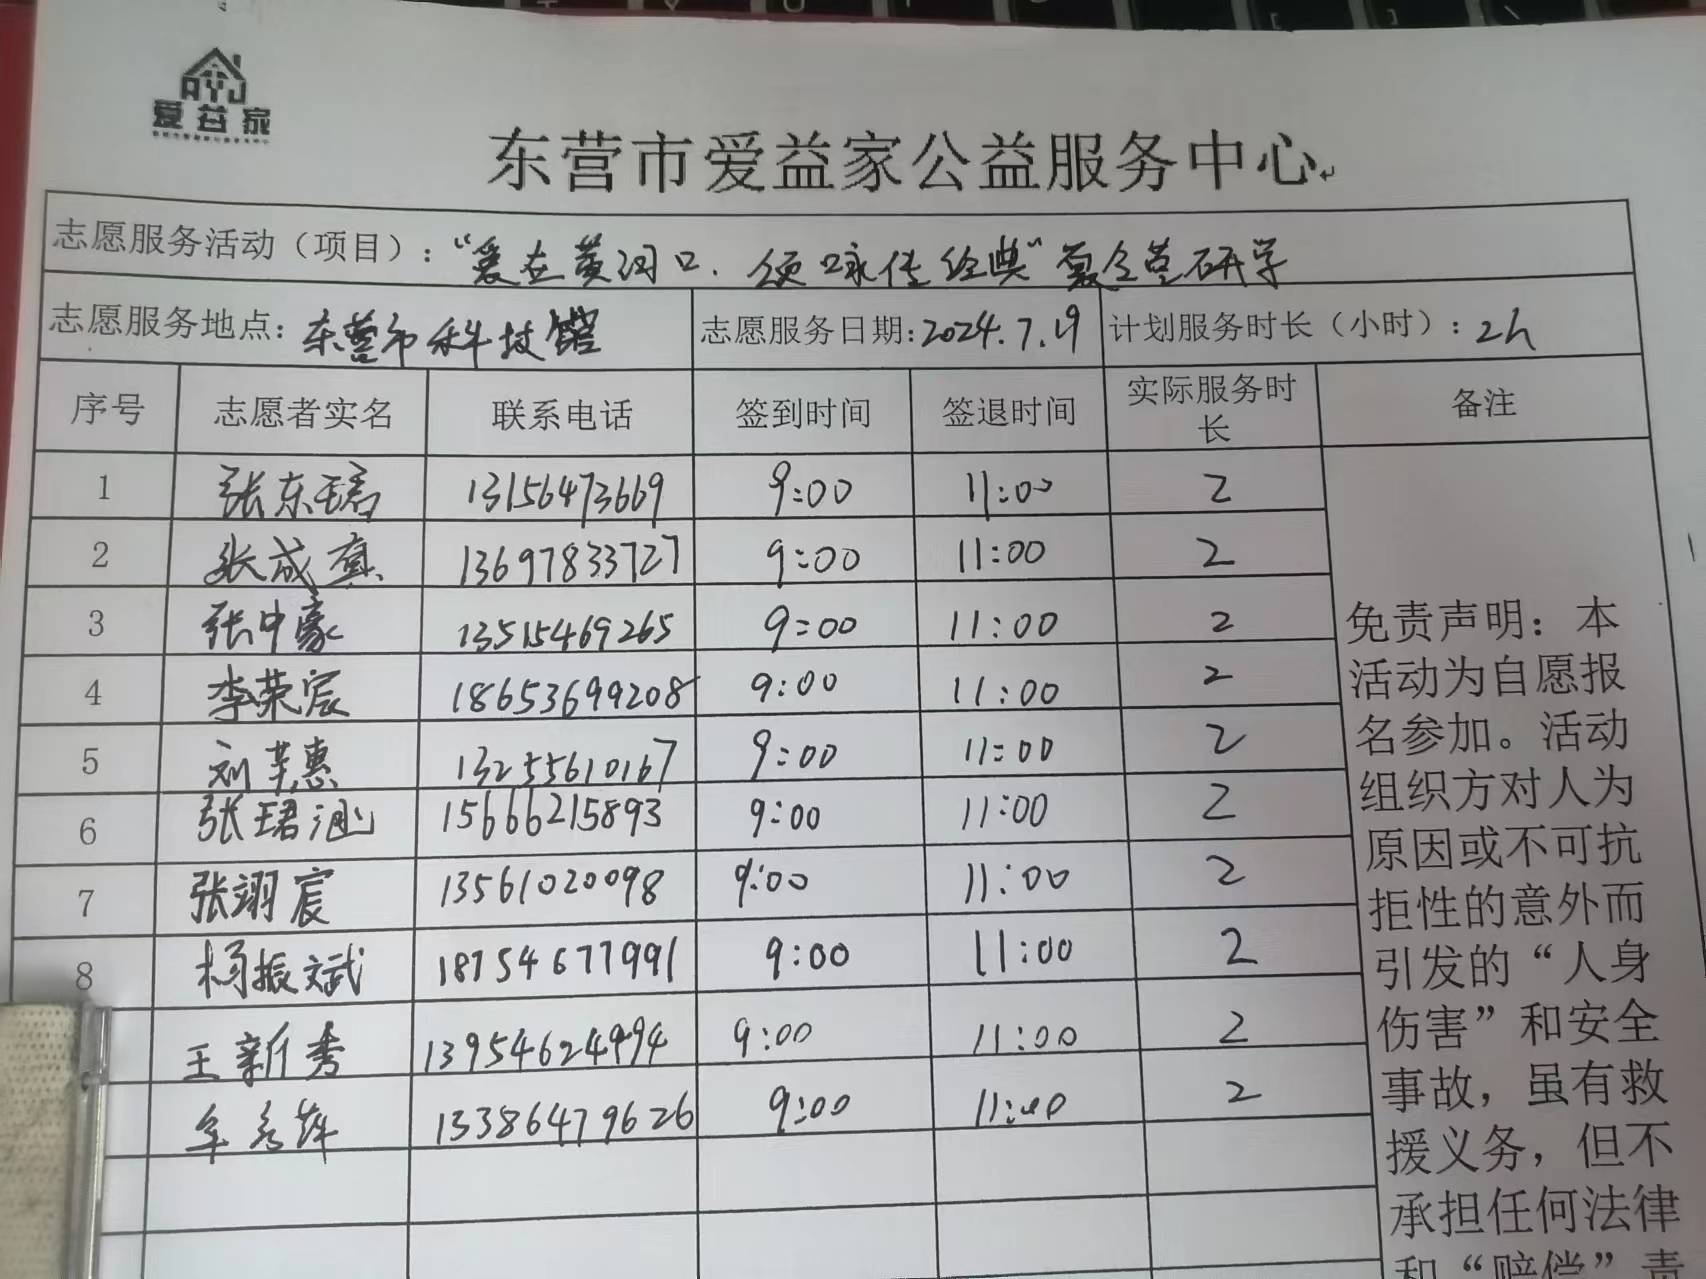 AYJ
爱益家
东营市爱益家公益服务中心
志愿服务活动（项目）：“爱在黄河口．颂咏传经典”夏令营研学
志愿服务地点：东营市科技馆 志愿服务日期：2024.7.19 计划服务时长（小时）：2h
序号 志愿者实名 联系电话 签到时间 签退时间 实际服务时长 备注
1 张东珺 13156473669 9:00 11:00 2
2 张成真 13697833727 9:00 11:00 2
3 张中豪 13515469265 9:00 11:00 2
4 李荣宸 18653699208 9:00 11:00 2
5 刘惠 13255610167 9:00 11:00 2
6 张珺涵 15666215893 9:00 11:00 2
7 张翊宸 13561020098 9:00 11:00 2
8 杨振斌 18754677991 9:00 11:00 2
王新秀 13954624494 9:00 11:00 2
牟萍 13386479626 9:00 11:00 2
免责声明：本
活动为自愿报
名参加。活动
组织方对人为
原因或不可抗
拒性的意外而
引发的“人身
伤害”和安全
事故，虽有救
援义务，但不
承担任何法律
和“赔偿”责